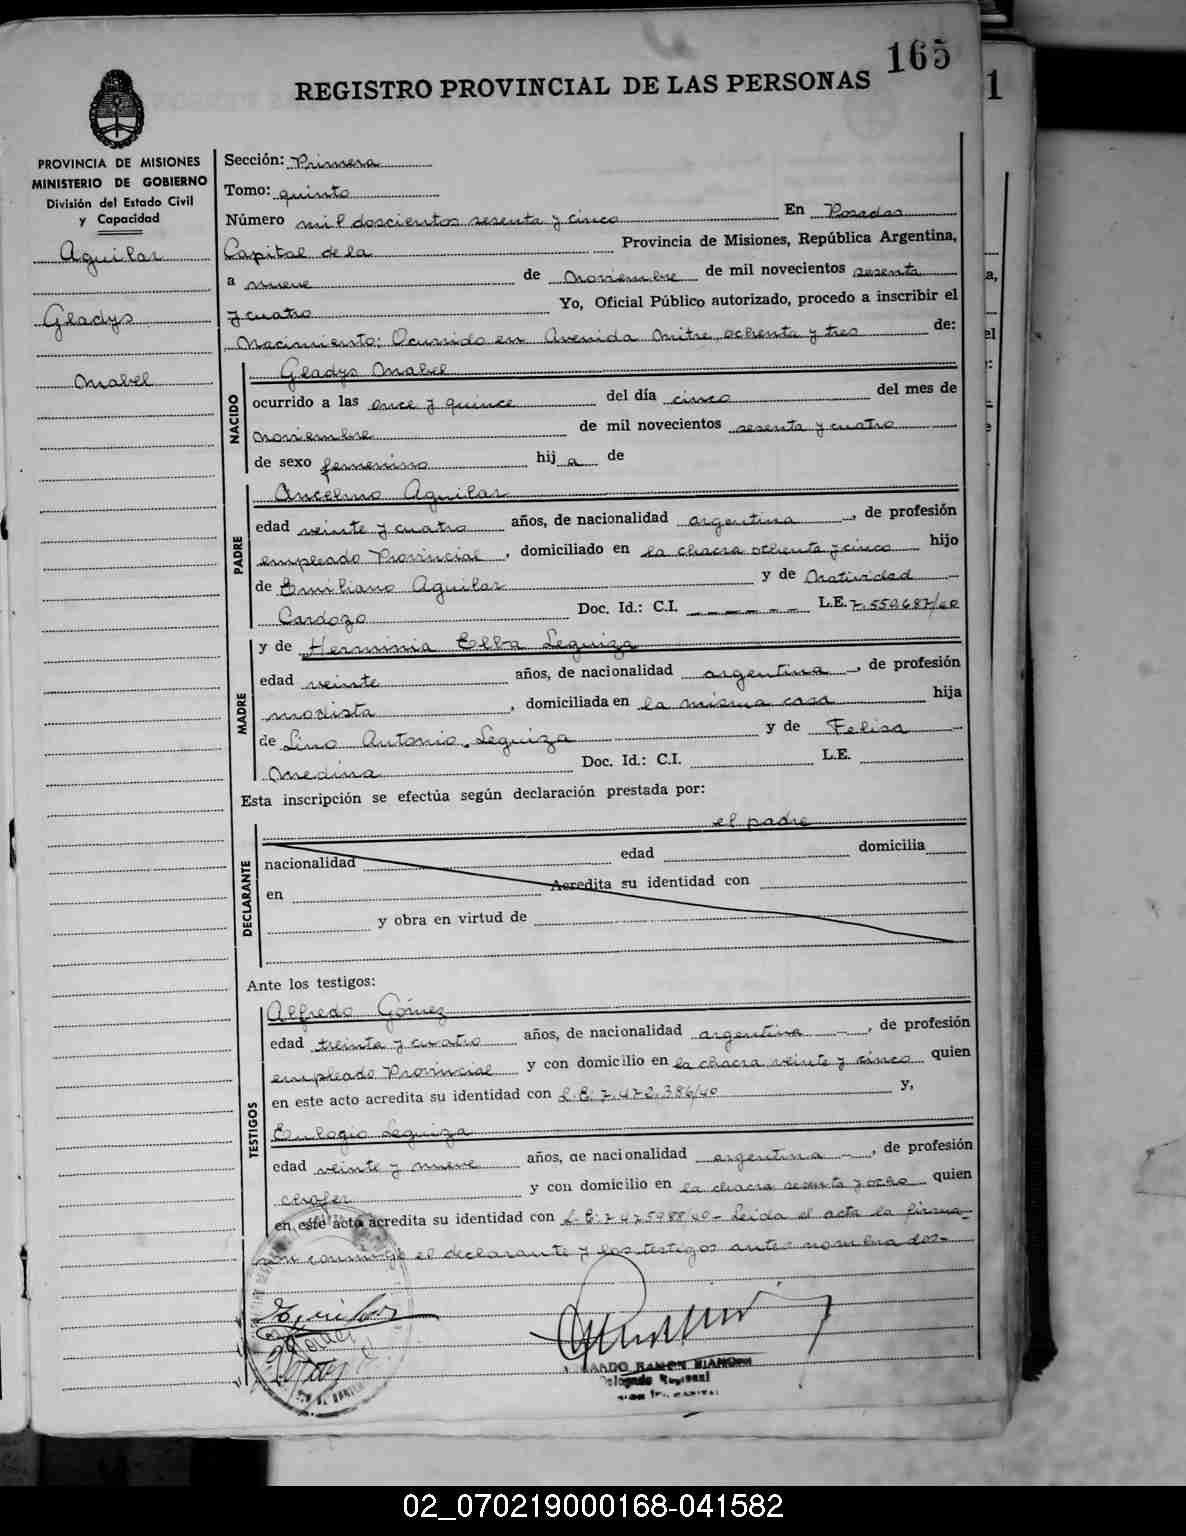 165
REGISTRO PROVINCIAL DE LAS PERSONAS
1
PROVINCIA DE MISIONES
MINISTERIO DE GOBIERNO
División del Estado Civil
y Capacidad
Aguilar
Gladys
Mabel
Sección: Primera
Tomo: quinto
Número mil doscientos sesenta y cinco En Posadas
Capital de la Provincia de Misiones, República Argentina,
a nueve de noviembre de mil novecientos sesenta
y cuatro Yo, Oficial Público autorizado, procedo a inscribir el
Nacimiento: Ocurrido en Avenida Mitre, ochenta y tres de:
NACIDO
Gladys Mabel
ocurrido a las once y quince del día cinco del mes de
noviembre de mil novecientos sesenta y cuatro
de sexo femenino hija de
PADRE
Ancelmo Aguilar
edad veinte y cuatro años, de nacionalidad argentina, de profesión
empleado Provincial, domiciliado en la chacra ochenta y cinco hijo
de Emiliano Aguilar y de Natividad
Cardozo Doc. Id.: C.I. _ _ _ _ _ _ L.E. 7.559687/40
MADRE
y de Herminia Elba Leguiza
edad veinte años, de nacionalidad argentina, de profesión
modista, domiciliada en la misma casa hija
de Lino Antonio Leguiza y de Felisa
Medina Doc. Id.: C.I. L.E.
Esta inscripción se efectúa según declaración prestada por:
el padre
DECLARANTE
nacionalidad edad domicilia
en Acredita su identidad con
y obra en virtud de
Ante los testigos:
TESTIGOS
Alfredo Gómez
edad treinta y cuatro años, de nacionalidad argentina -, de profesión
empleado Provincial y con domicilio en la chacra veinte y cinco quien
en este acto acredita su identidad con L.E. 7.472.386/40 y,
Eulogio Leguiza
edad veinte y nueve años, de nacionalidad argentina -, de profesión
chofer y con domicilio en la chacra sesenta y ocho quien
en este acto acredita su identidad con L.E. 7.475988/40 - Leida el acta la firma-
ron conmigo el declarante y los testigos antes nombrados-
RAMON BIANCHI
Delegado Regional
02_070219000168-041582